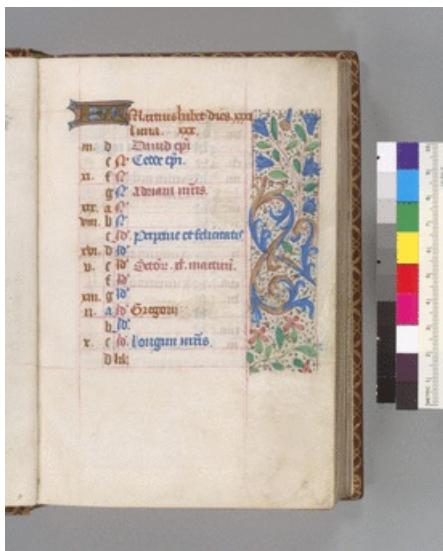 KL Martius habet dies xxxi
luna. xxx.
d Dauid epi
e N Cedde epi.
xi. f N
g N Adriani mris.
xix. a N
viii. b N
c Id Perpetue et felicitatis
xvi. d Id
v. e Id
f Id
xiii. g Id
ii. a Id Gregorii
b Id
x. c Id Longini mris.
d kł